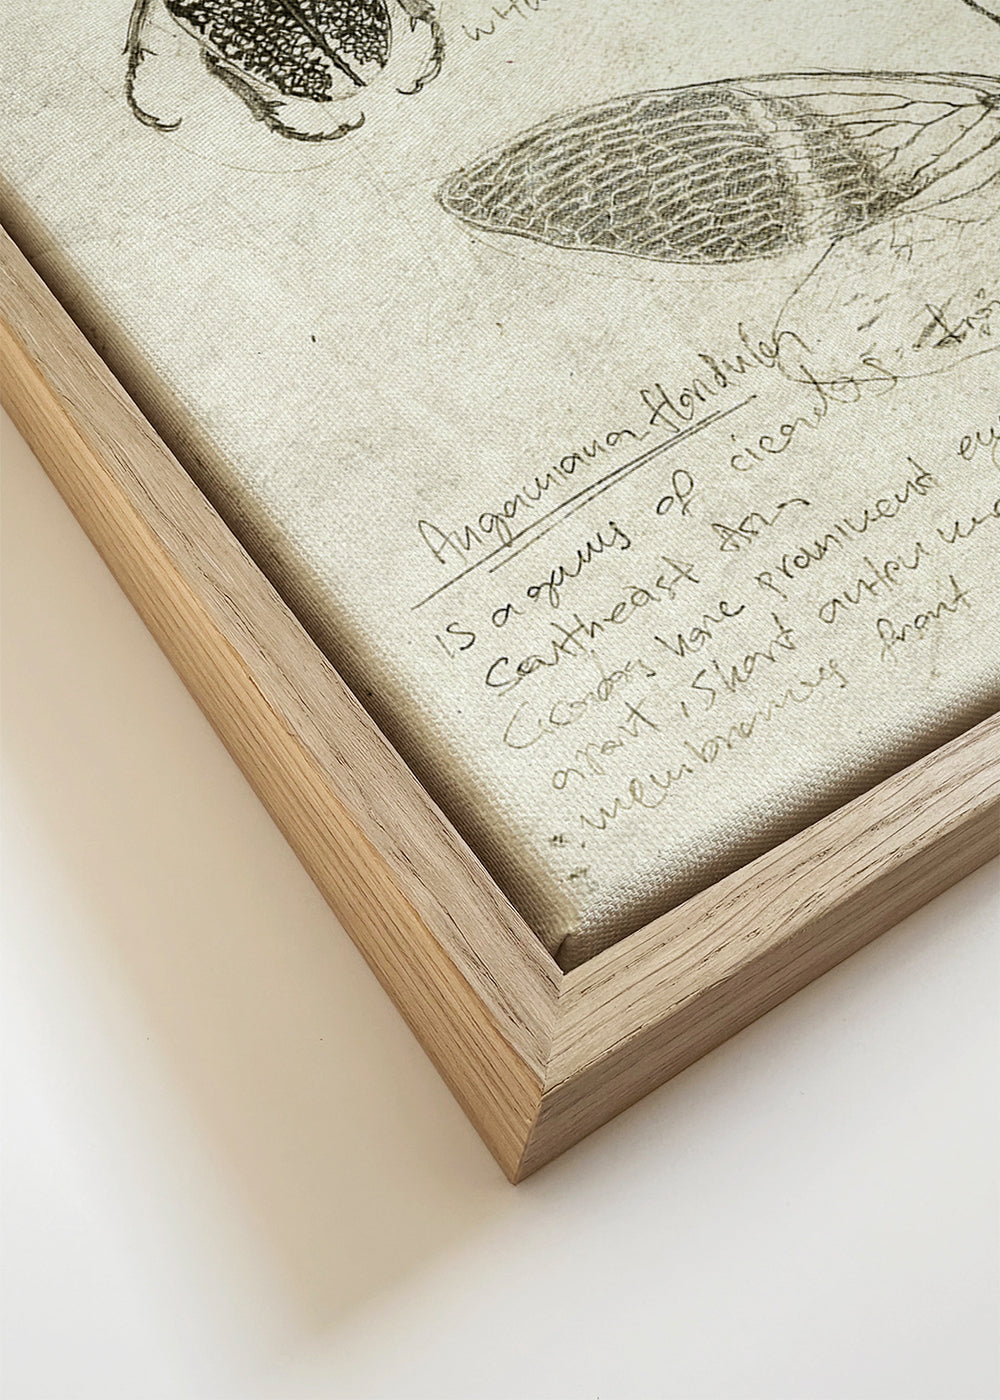 Angamiana floridula
is a genus of cicadas
Southeast Asia
Cicadas have prominent
apart, short antennae
membranous front